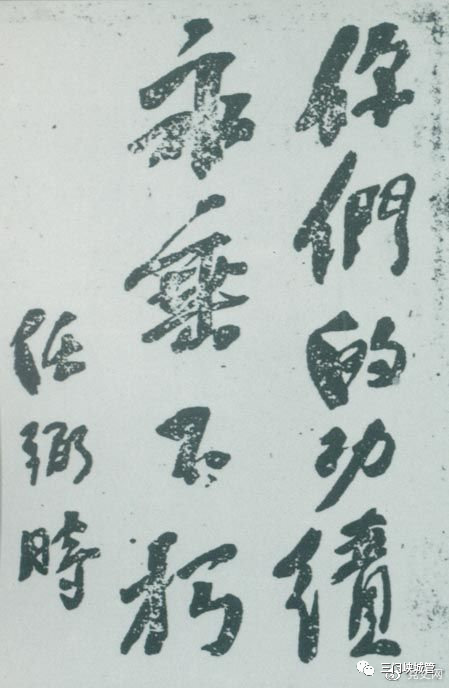 你們的功績
永垂不朽
任弼時
三门峡城管